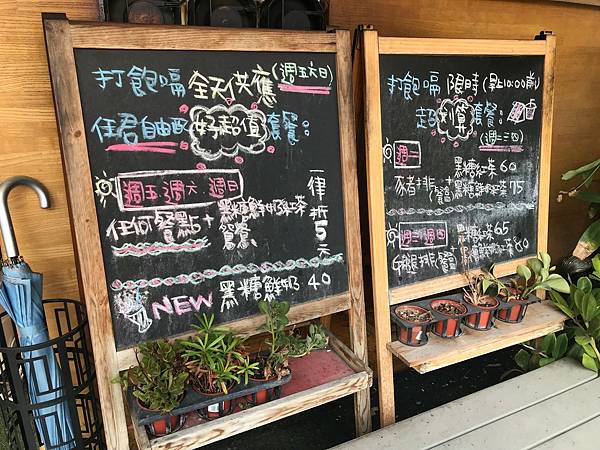 打飽嗝 全天供應 (週五六日)
任君自由配 好超值 套餐:
週五 週六 週日
任何餐點 + 黑糖鮮奶/紅茶 一律折5元
NEW 黑糖鮮奶 40
打飽嗝 限時 (早上10:00前)
超划算 套餐:
(週一三四)
週一
黑糖紅茶 60
豬排 黑糖鮮奶紅茶 75
週三 週四
黑糖紅茶 65
腿排 80